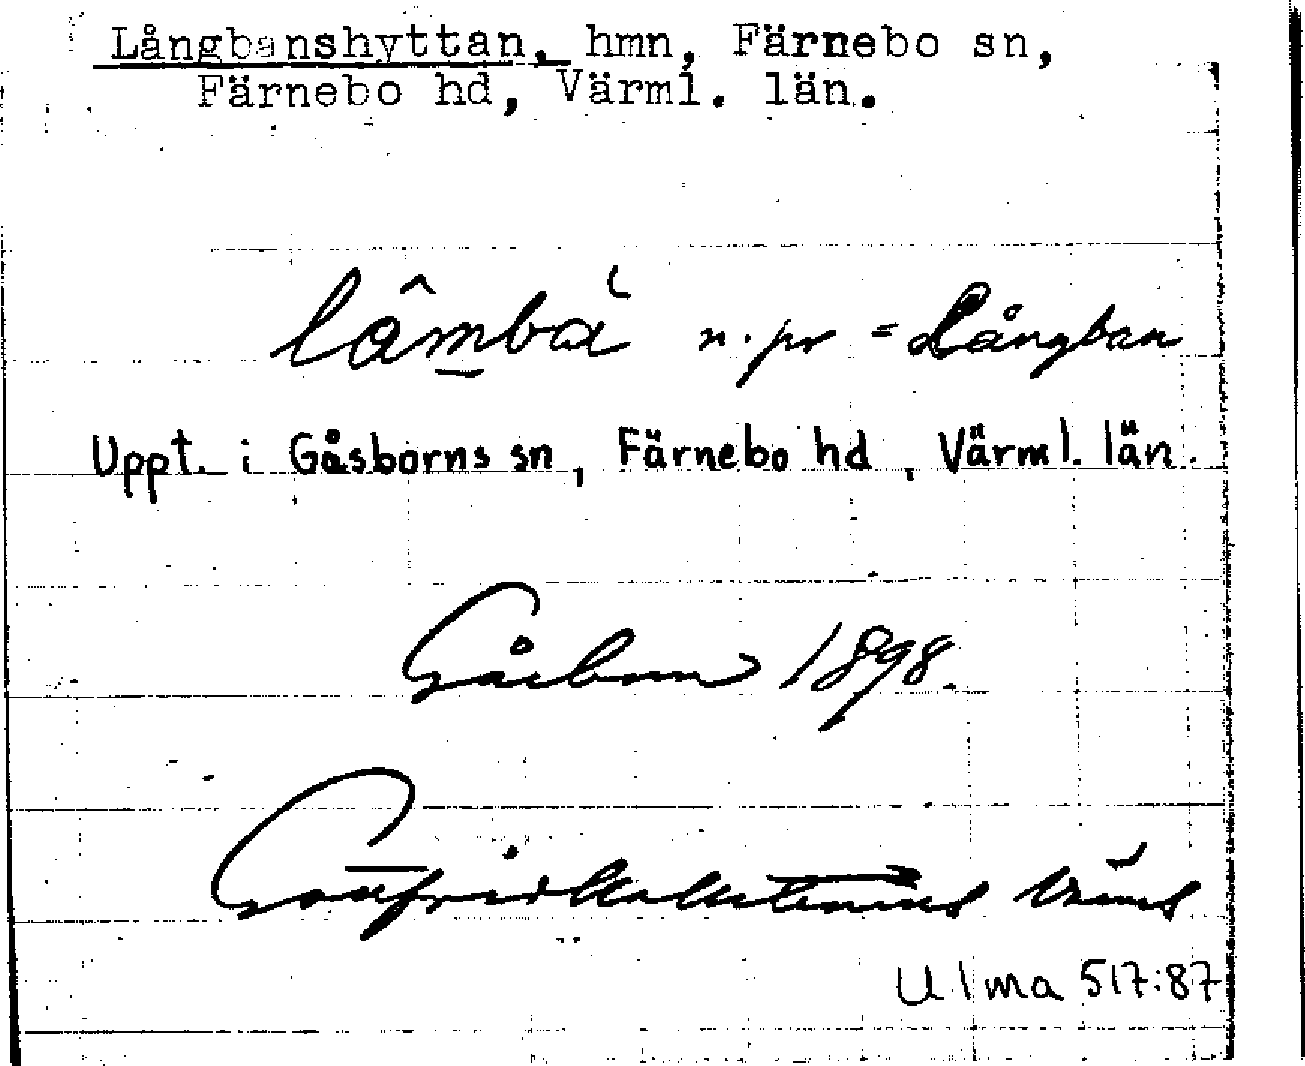 Långbanshyttan, hmn, Färnebo sn,
Färnebo hd, Värml. län.
lâmbà n. pr = Långban
Uppt. i Gåsborns sn, Färnebo hd, Värml. län.
Gåsborn 1898.
Gottfrid Kallstenius
Ulma 517:87